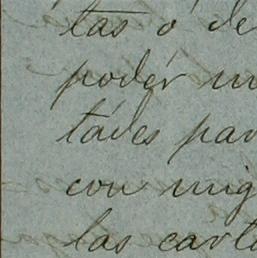 tas ó de
podér m
tádes par
con mig
las carta